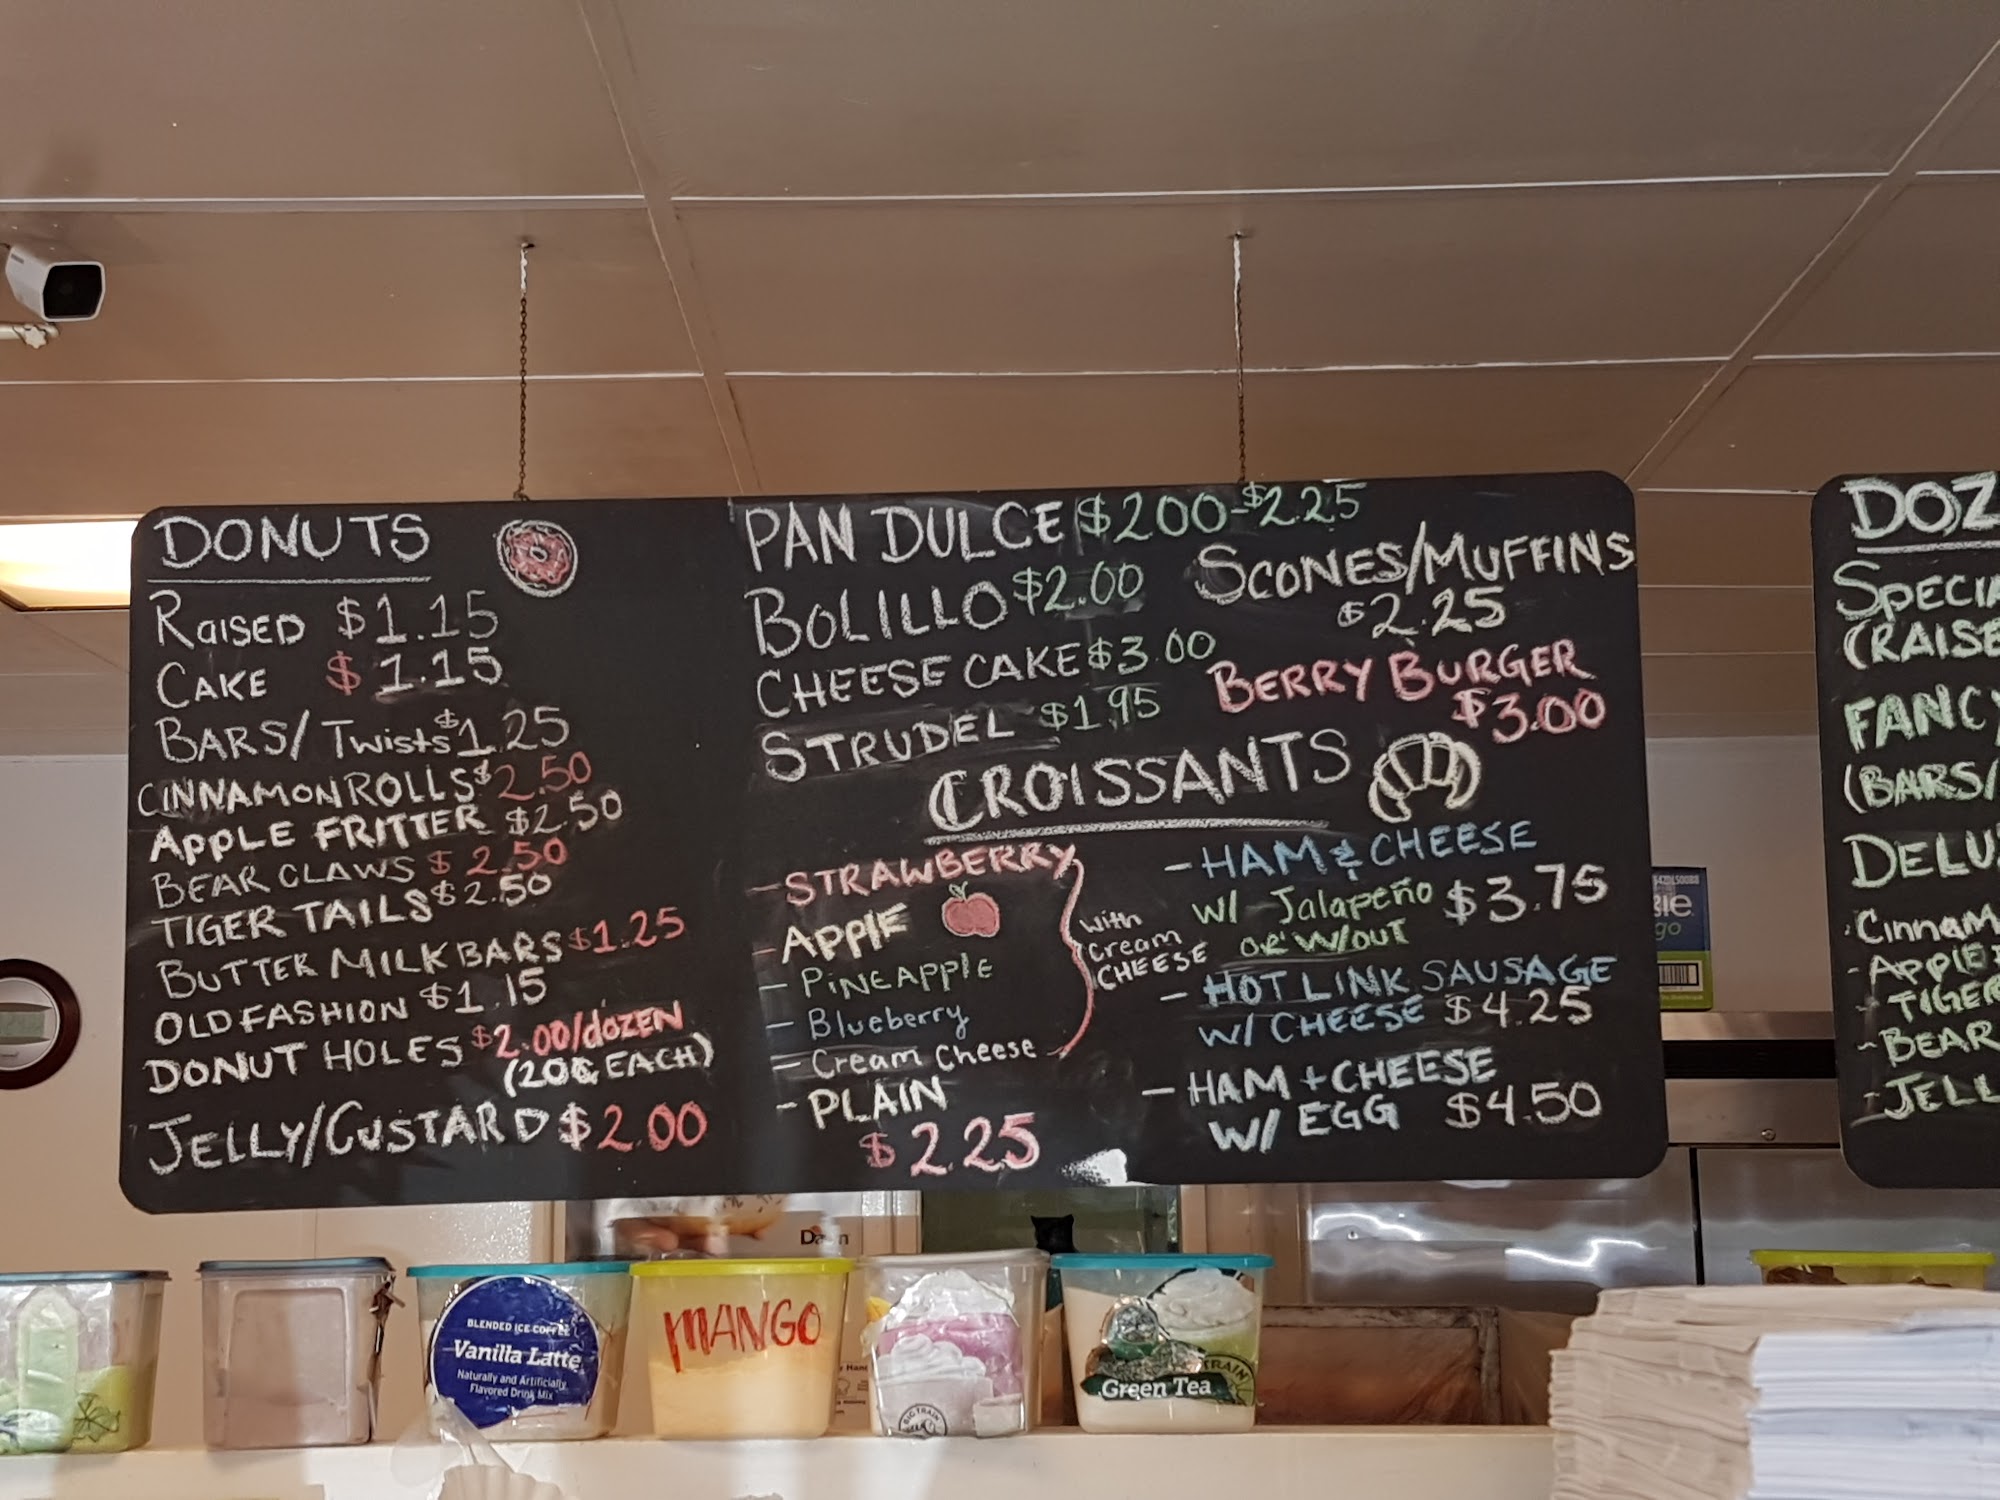 DONUTS
RAISED $1.15
CAKE $1.15
BARS/Twists $1.25
CINNAMON ROLLS $2.50
APPLE FRITTER $2.50
BEAR CLAWS $2.50
TIGER TAILS $2.50
BUTTER MILK BARS $1.25
OLD FASHION $1.15
DONUT HOLES $2.00/dOZEN
(20¢ EACH)
JELLY/CUSTARD $2.00
PAN DULCE $200-$2.25
BOLILLO $2.00
CHEESE CAKE $3.00
STRUDEL $1.95
SCONES/MUFFINS
$2.25
BERRY BURGER
$3.00
CROISSANTS
- STRAWBERRY
- APPlE
- PiNEAPPlE
- Blueberry
- Cream Cheese
with
Cream
CHEESE
- PLAIN
$2.25
- HAM & CHEESE
W/ Jalapeño $3.75
OR W/OUT
- HOT LINK SAUSAGE
W/ CHEESE $4.25
- HAM + CHEESE
W/ EGG $4.50
DOZ
SPECIA
(RAISE
FANCY
(BARS/
DELU
Cinnam
- APPlE
- TIGER
- BEAR
- JELL
Dawn
BLENDED ICE COFFEE
Vanilla Latte
Naturally and Artificially
Flavored Drink Mix
MANGO
BIG TRAIN
TRAIN
Green Tea